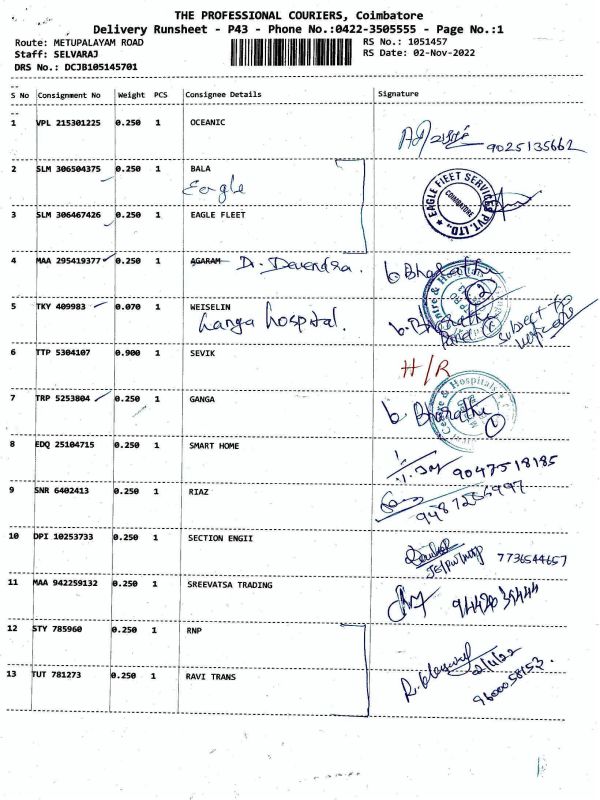 THE PROFESSIONAL COURIERS, Coimbatore
Delivery Runsheet - P43 - Phone No.:0422-3505555 - Page No.:1
Route: METUPALAYAM ROAD RS No.: 1051457
Staff: SELVARAJ RS Date: 02-Nov-2022
DRS No.: DCJB105145701
S No Consignment No Weight PCS Consignee Details Signature
1 VPL 215301225 0.250 1 OCEANIC
9025135662
2 SLM 306504375 0.250 1 BALA
Eagle
EAGLE FLEET SERVICES PVT. LTD.,
COIMBATORE
3 SLM 306467426 0.250 1 EAGLE FLEET
4 MAA 295419377 0.250 1 AGARAM Dr. Devendra. b. Bharathi
2
5 TKY 409983 0.070 1 WEISELIN
Ganga hospital. b. Bharathi
subject to
6 TTP 5304107 0.900 1 SEVIK
H/R
7 TRP 5253804 0.250 1 GANGA b. Bharathi 1
& Hospitals
8 EDQ 25104715 0.250 1 SMART HOME
9047518185
9 SNR 6402413 0.250 1 RIAZ
9487256997
10 DPI 10253733 0.250 1 SECTION ENGII
7736544657
11 MAA 942259132 0.250 1 SREEVATSA TRADING
12 STY 785960 0.250 1 RNP
13 TUT 781273 0.250 1 RAVI TRANS
9600058153.